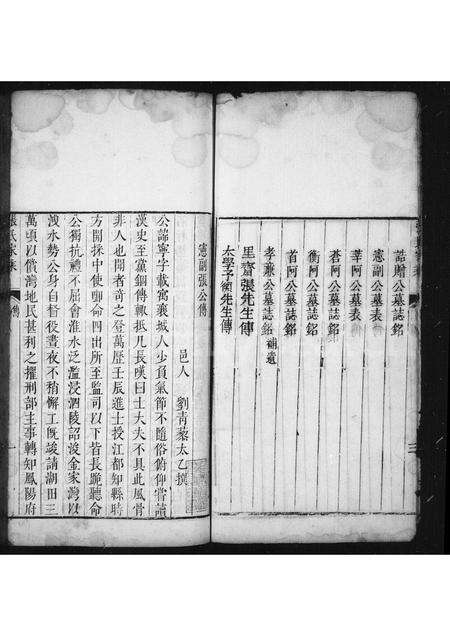 誥贈公墓誌銘
憲副公墓表
莘阿公墓表
蒼阿公墓誌銘
衡阿公墓誌銘
首阿公墓誌銘
孝兼公墓誌銘 補遺
里齋張先生傳
太學子衡先生傳
三
憲副張公傳
邑人 劉青藜太乙撰
公諱寧字載寓襄城人少負氣節不隨俗俯仰嘗讀
漢史至黨錮傳輒抵几長嘆曰士大夫不具此風骨
非人也聞者奇之登萬歷壬辰進士授江都知縣時
方開採中使啣命四出所至監司以下皆長跪聽命
公獨抗禮不屈會淮水泛濫浸泗陵詔浚金家灣以
洩水勢公身自督役晝夜不稍懈工既竣請湖田三
萬頃以償灣地民甚利之擢刑部主事轉知鳳陽府
張氏家乘 傳 一